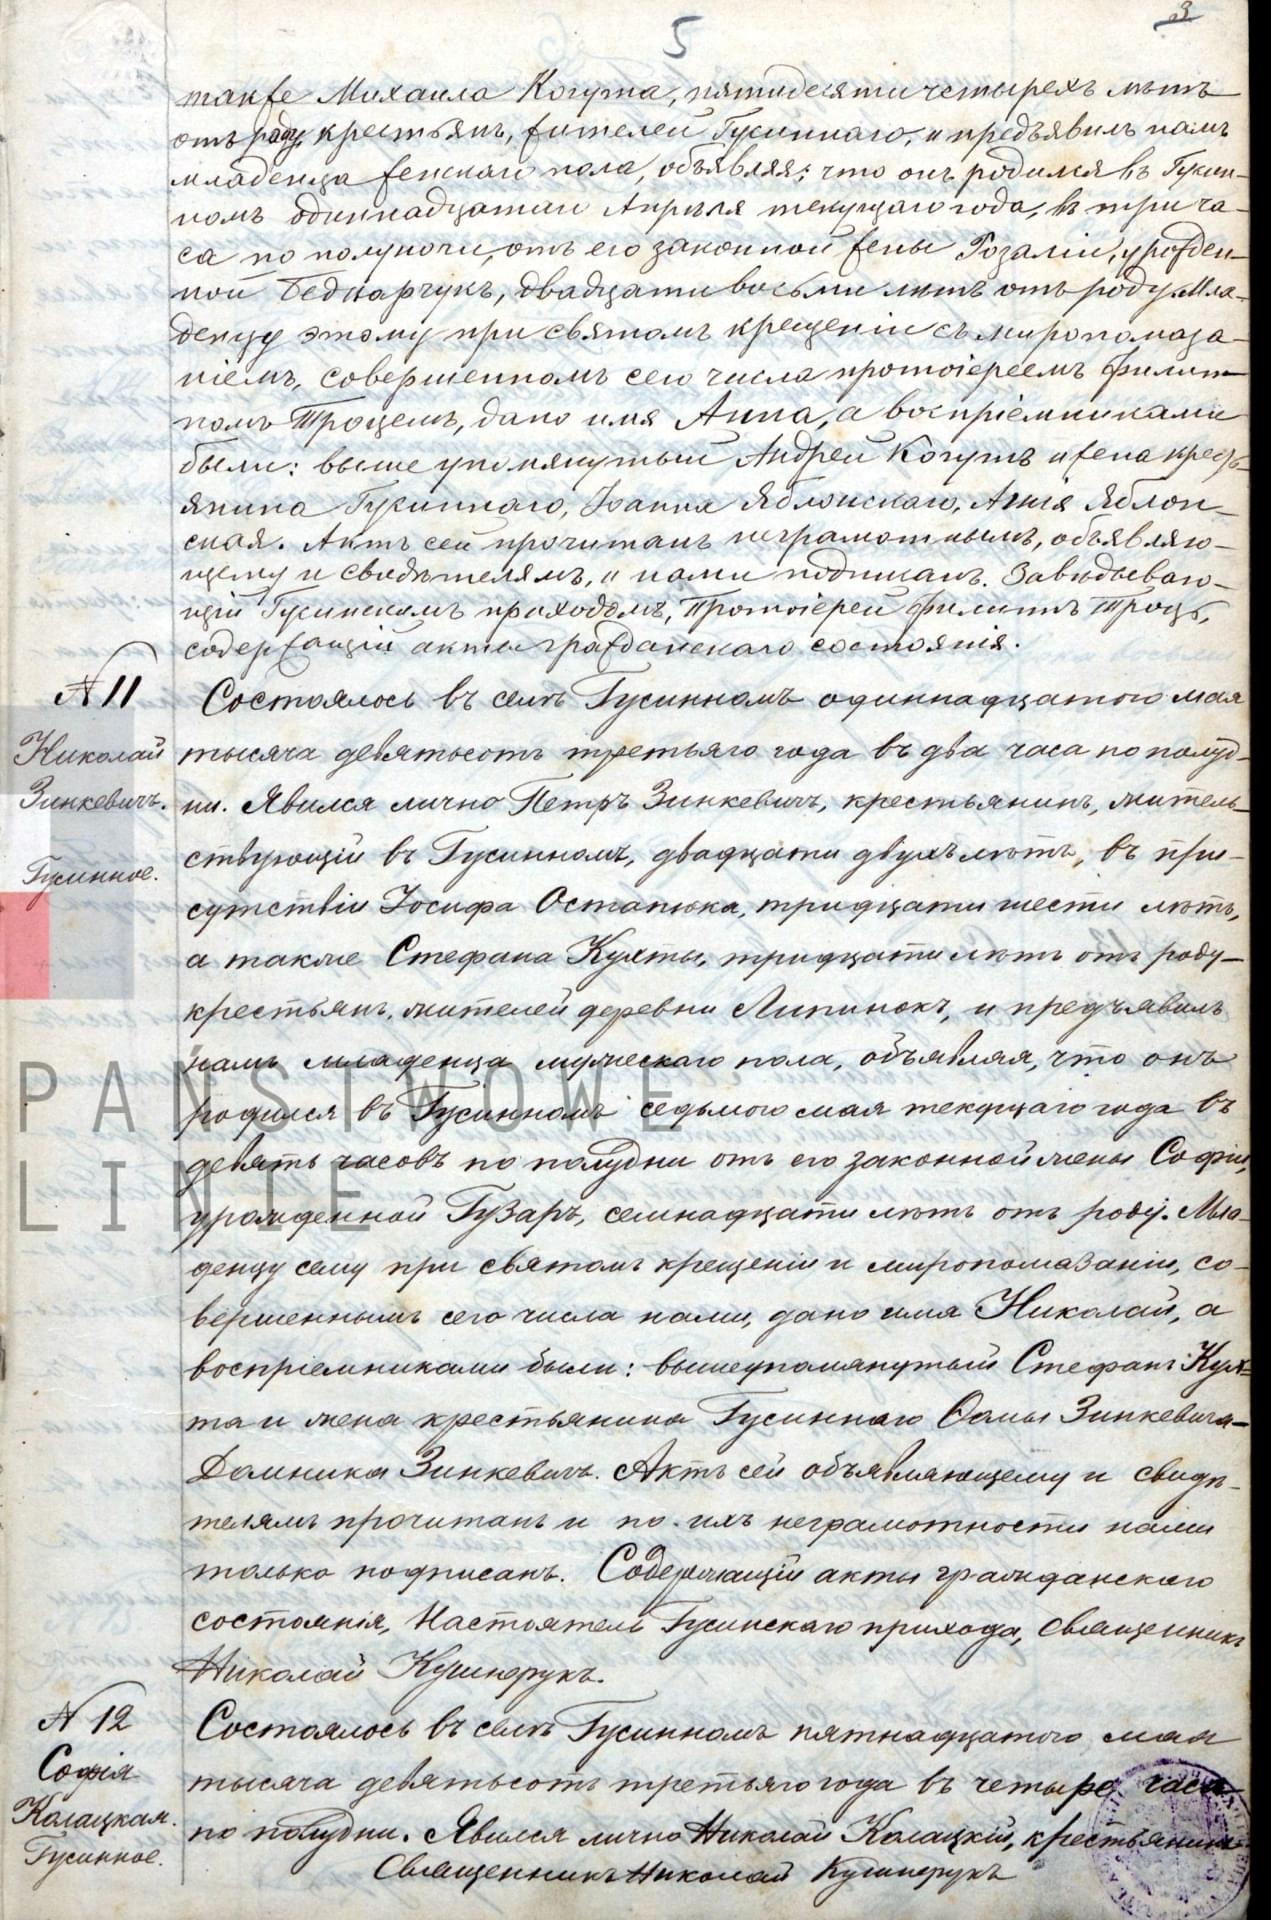 5
3
также Михаила Когута, пятидесяти четырехъ лѣтъ
отъ роду, крестьянъ, жителей Гусиннаго, и предъявилъ намъ
младенца женскаго пола, объявляя: что онъ родился въ Гусин-
номъ одиннадцатаго Апрѣля текущаго года, въ три ча-
са по полуночи, отъ его законной жены Розаліи, урожден-
ной Беднарчукъ, двадцати восьми лѣтъ отъ роду. Мла-
денцу этому при святомъ крещеніи съ миропомаза-
ніемъ, совершенномъ сего числа протоіереемъ Филип-
помъ Троцемъ, дано имя Анна, а воспріемниками
были: выше упомянутый Андрей Когутъ и жена кресть-
янина Гусиннаго, Іоанна Яблонскаго, Анна Яблон-
ская. Актъ сей прочитанъ неграмотнымъ, объявляю-
щему и свидѣтелямъ, и нами подписанъ. Завѣдываю-
щій Гусинскимъ приходомъ, Протоіерей Филиппъ Троцъ,
содержащій акты гражданскаго состоянія.
N 11
Николай
Зинкевичъ.
Гусинное.
Состоялось въ селѣ Гусинномъ одиннадцатого мая
тысяча девятьсотъ третьяго года въ два часа по полуд-
ни. Явился лично Петръ Зинкевичъ, крестьянинъ, житель-
ствующій въ Гусинномъ, двадцати двухъ лѣтъ, въ при-
сутствіи Іосифа Остапюка, тридцати шести лѣтъ,
а также Стефана Кухты, тридцати лѣтъ отъ роду
крестьянъ, жителей деревни Липинокъ, и предъявилъ
намъ младенца мужескаго пола, объявляя, что онъ
родился въ Гусинномъ седьмого мая текущаго года въ
девять часовъ по полудни отъ его законной жены Софіи,
урожденной Гузаръ, семнадцати лѣтъ отъ роду. Мла-
денцу сему при святомъ крещеніи и миропомазаніи, со-
вершеннымъ сего числа нами, дано имя Николай, а
воспріемниками были: вышеупомянутый Стефанъ Кух-
та и жена крестьянина Гусиннаго Ѳомы Зинкевича-
Домника Зинкевичъ. Актъ сей объявляющему и свидѣ-
телямъ прочитанъ и по ихъ неграмотности нами
только подписанъ. Содержащій акты гражданского
состоянія, Настоятель Гусинскаго прихода, священникъ
Николай Кушнерукъ.
N 12
Софія
Колацкая.
Гусинное.
Состоялось въ селѣ Гусинномъ пятнадцатого мая
тысяча девятьсотъ третьяго года въ четыре часа
по полудни. Явился лично Николай Колацкій, крестьянинъ
Священникъ Николай Кушнерукъ